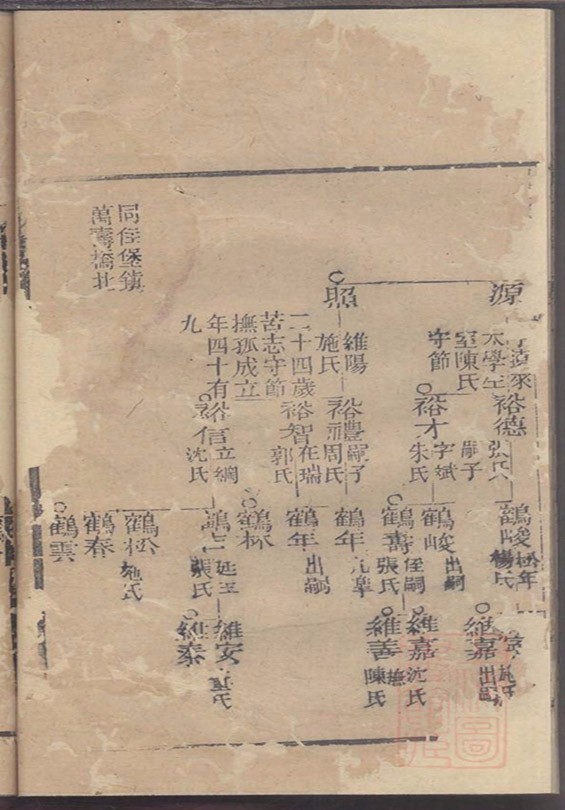 源
太學生
室陳氏
守節
照
維陽
施氏
二十四歲
苦志守節
撫孤成立
年四十有
九
同住堡鎮
萬壽橋北
裕德
張氏
裕才
嗣子
字斌
朱氏
裕禮
嗣子
周氏
裕智
在瑞
郭氏
裕信
立綱
沈氏
鶴峻
楊氏
鶴峻
出嗣
鶴壽
侄嗣
張氏
鶴年
鶴年
出嗣
鶴林
延玉
張氏
鶴松
施氏
鶴春
鶴雲
施氏
維嘉
出嗣
維嘉
沈氏
維善
陳氏
維安
維泰